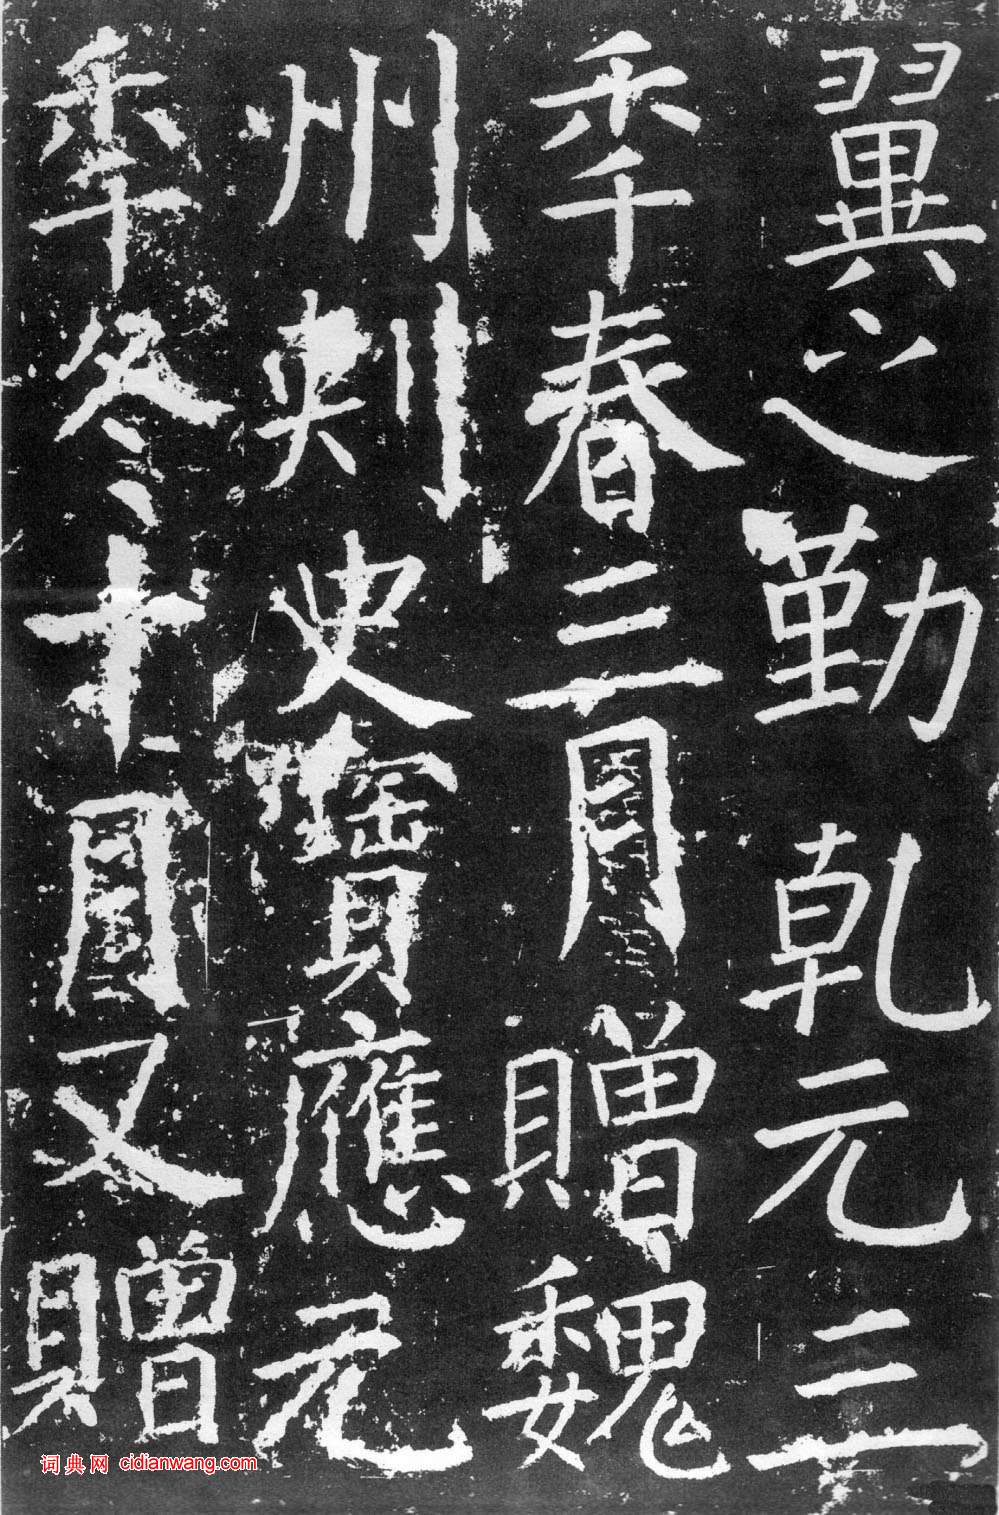 翼之勤乾元三
年春三月贈魏
州刺史寶應元
年冬十月又贈
词典网 cidianwang.com